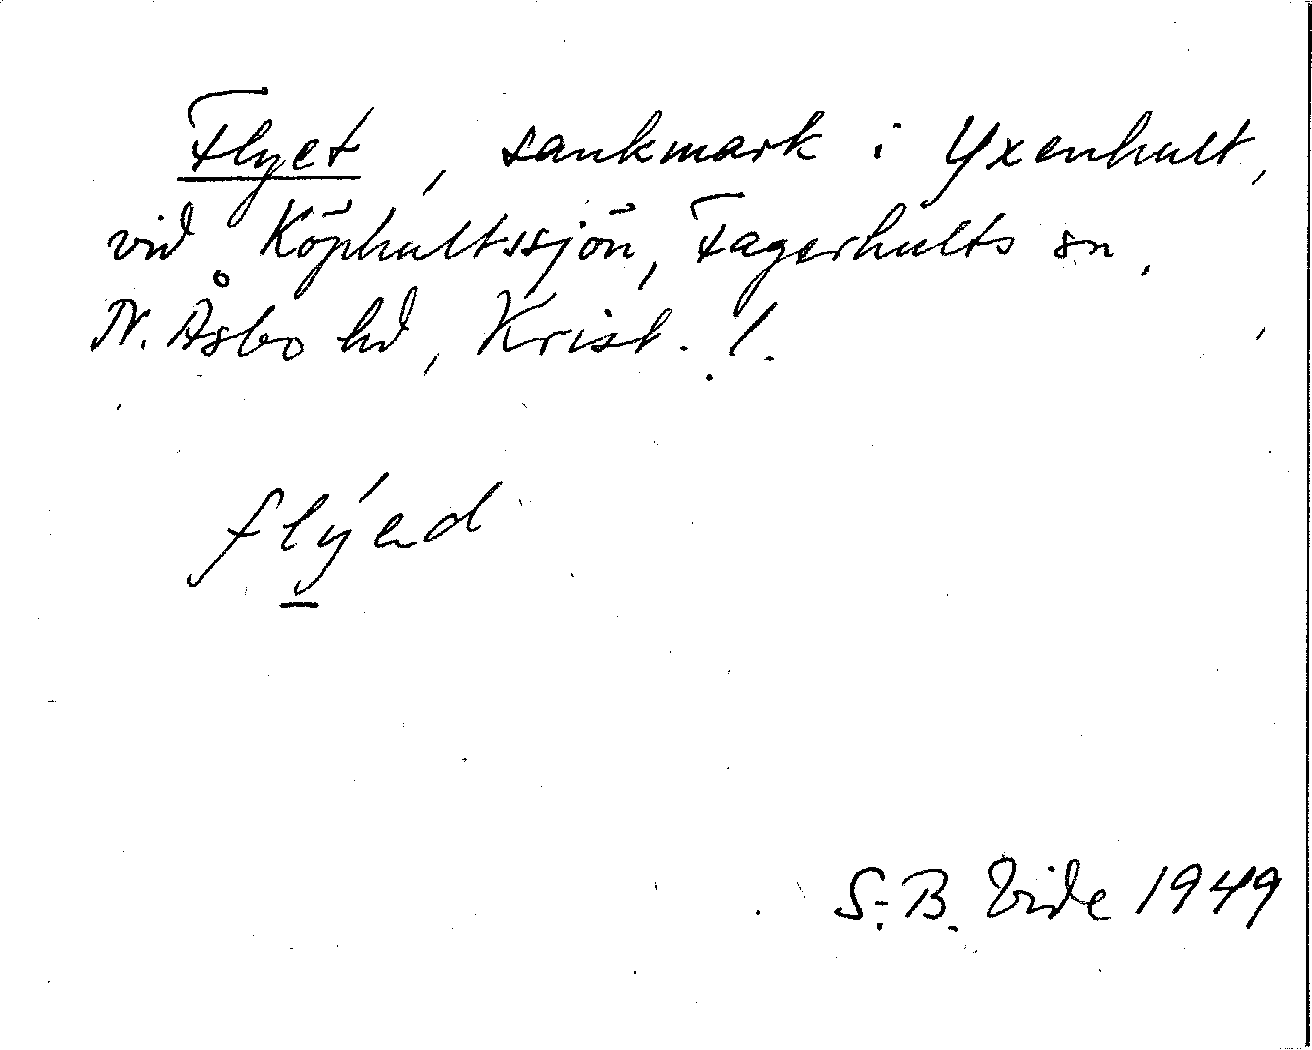 Flyet, sankmark i Yxenhult,
vid Köphultssjön, Fagerhults sn,
N. Åsbo hd, Krist. l.
flýed
S.-B. Vide 1949